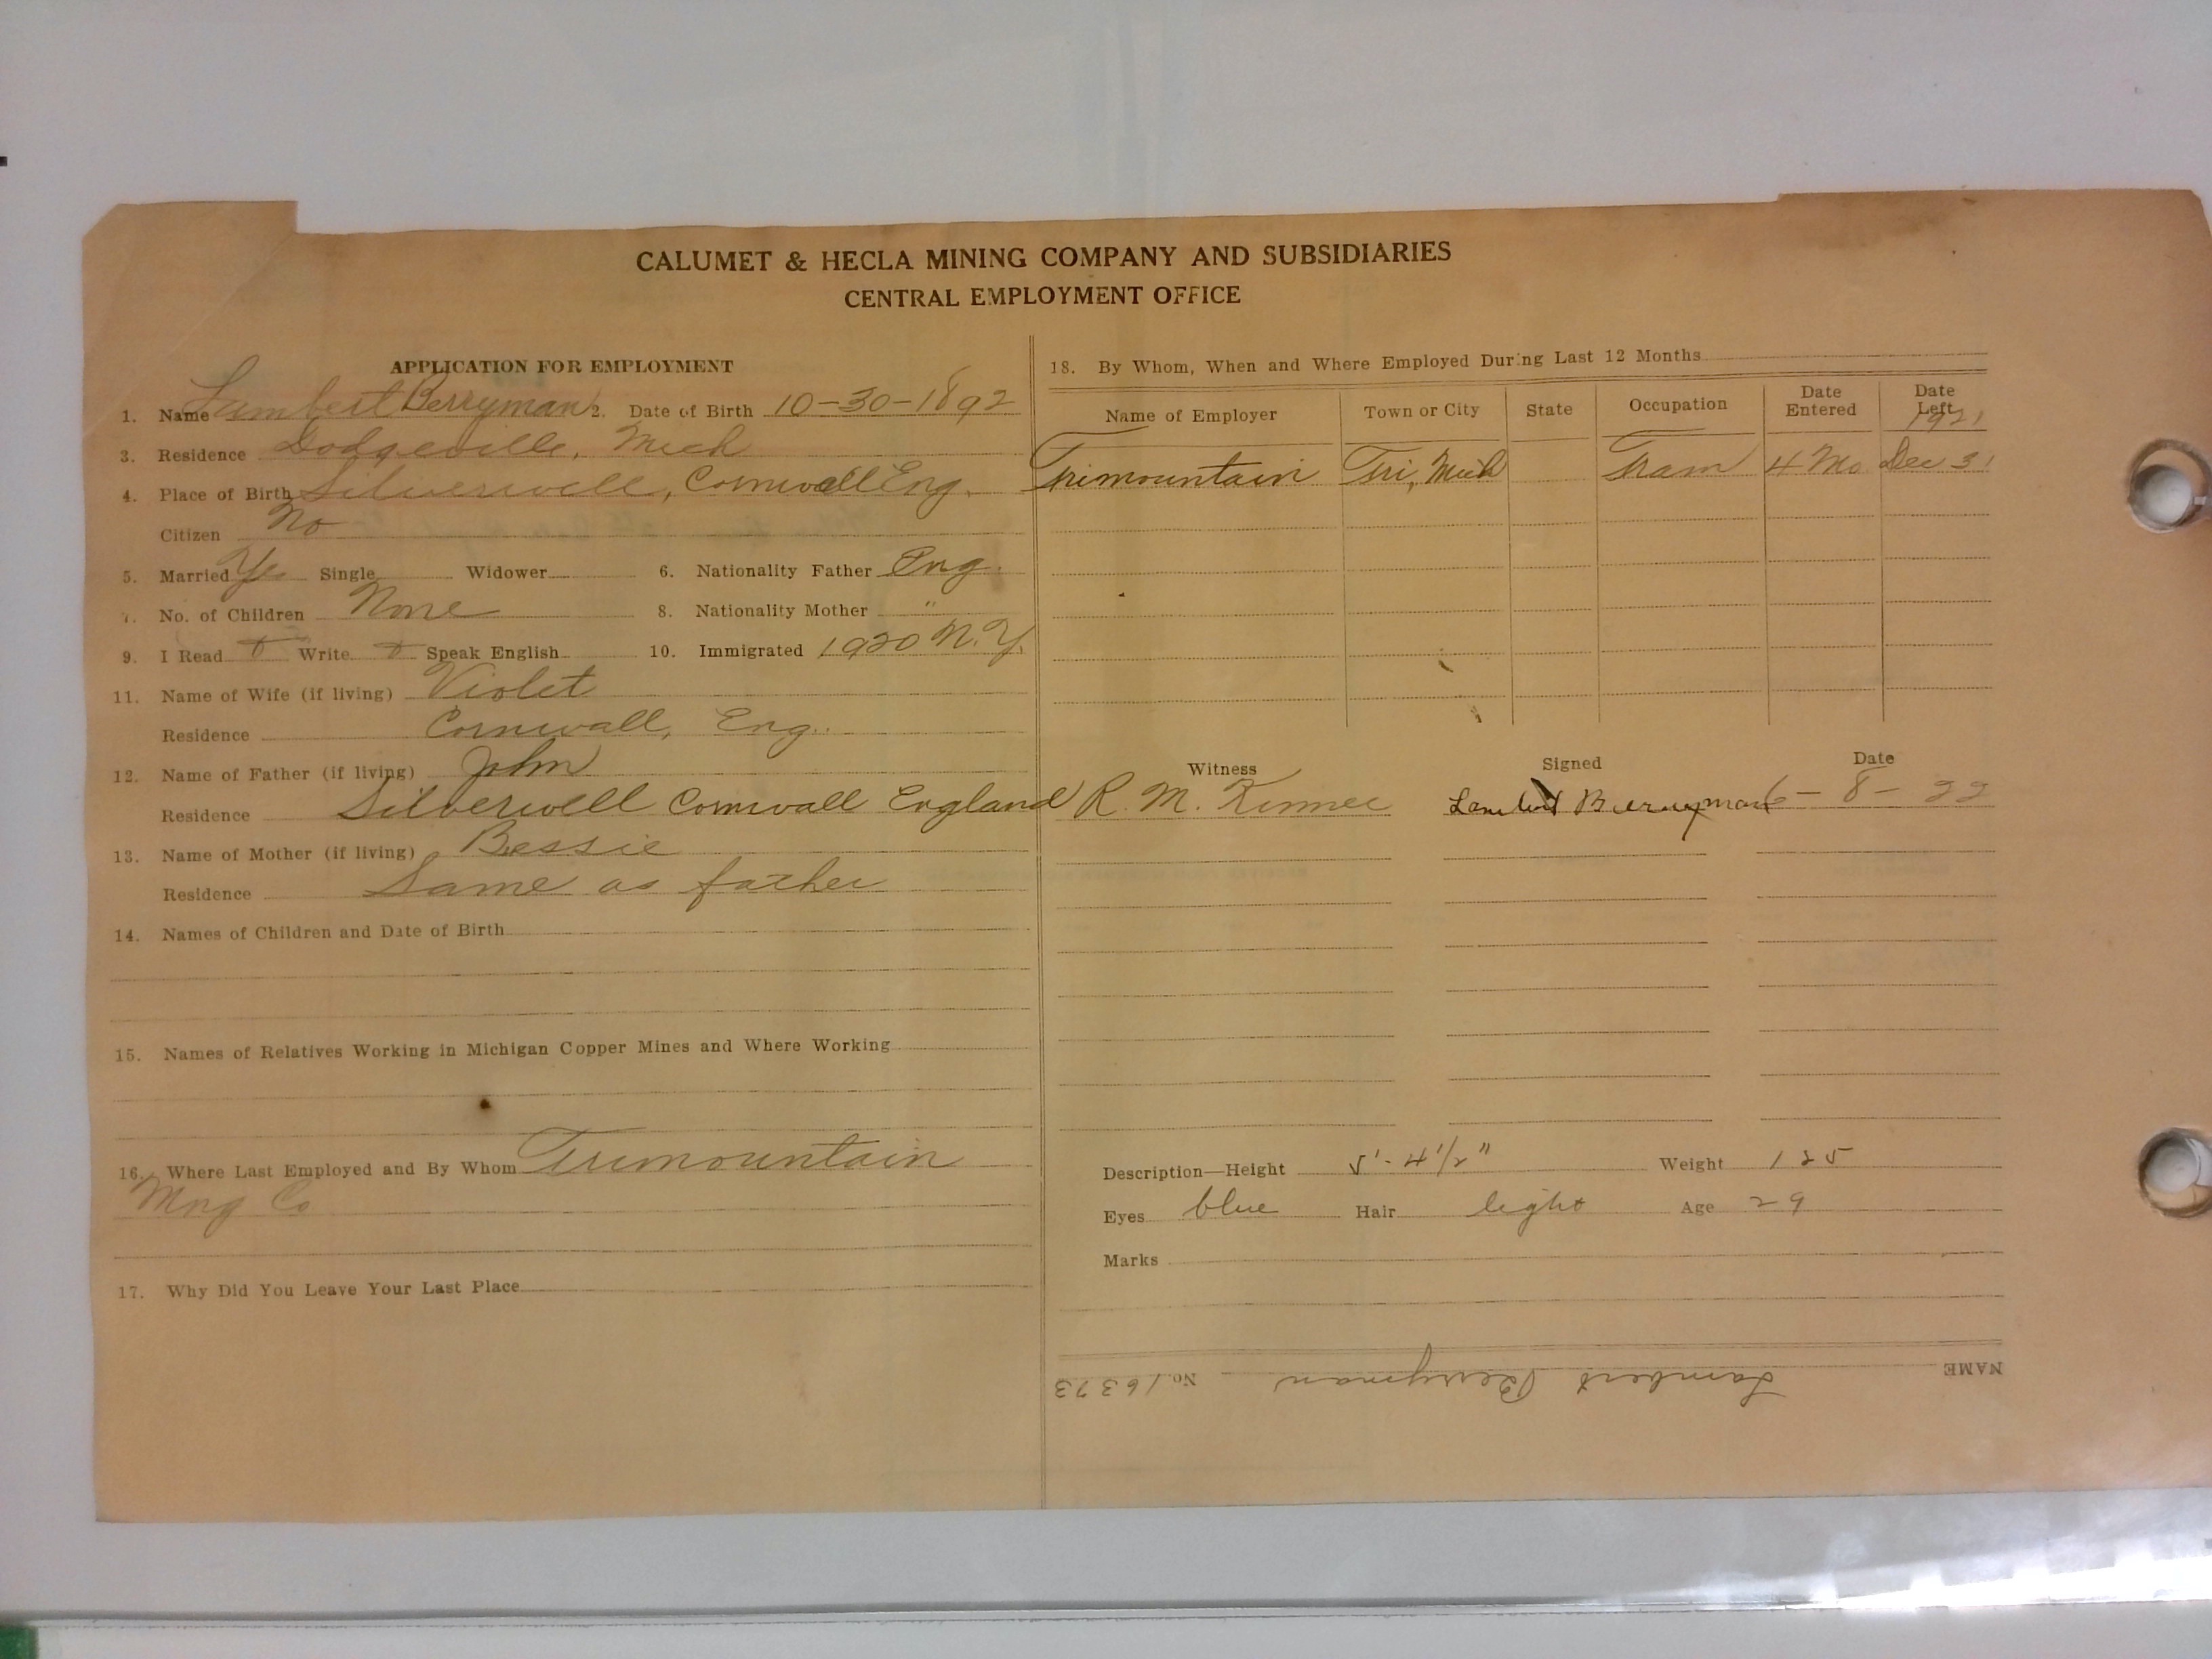 CALUMET & HECLA MINING COMPANY AND SUBSIDIARIES
CENTRAL EMPLOYMENT OFFICE
APPLICATION FOR EMPLOYMENT
1. Name Lambert Berryman 2. Date of Birth 10-30-1892
3. Residence Dodgeville, Mich
4. Place of Birth Silverwell, Cornwall Eng.
Citizen No
5. Married Yes Single Widower 6. Nationality Father Eng.
7. No. of Children None 8. Nationality Mother "
9. I Read Write Speak English 10. Immigrated 1920 N.Y.
11. Name of Wife (if living) Violet
Residence Cornwall, Eng.
12. Name of Father (if living) John
Residence Silverwell Cornwall England
13. Name of Mother (if living) Bessie
Residence Same as father
14. Names of Children and Date of Birth
15. Names of Relatives Working in Michigan Copper Mines and Where Working
16. Where Last Employed and By Whom Trimountain
Mng Co
17. Why Did You Leave Your Last Place
18. By Whom, When and Where Employed During Last 12 Months
Name of Employer Town or City State Occupation Date Entered Date Left
1921
Trimountain Tri, Mich Tram 4 Mo Dec 31
Witness Signed Date
R. M. Lambert Berryman 6-8-22
Description—Height 5'-4 1/2" Weight 125
Eyes blue Hair light Age 29
Marks
NAME Lambert Berryman No. 16373